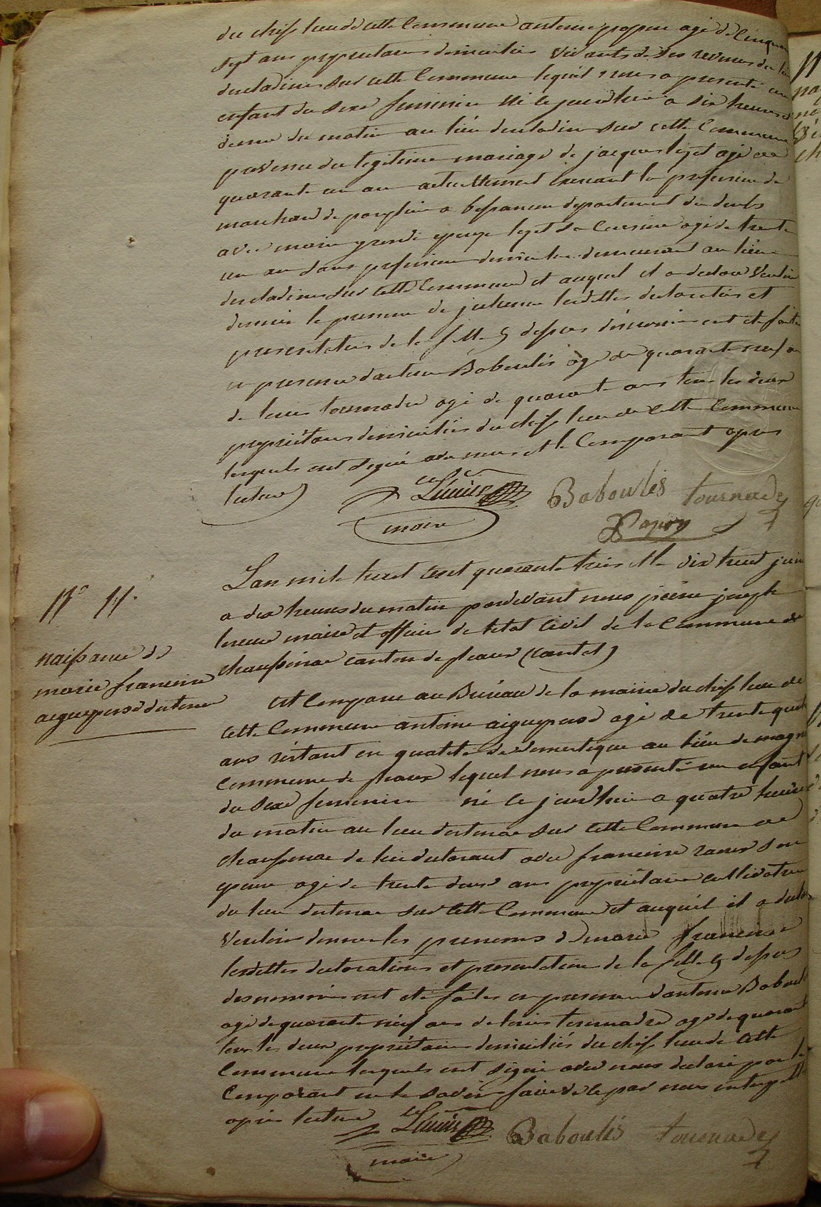 du chef lieu de cette Commune antoine papon agé de Cinquante
sept ans propriétaire domicilié vivants de ses revenus du lieu
sur cette Commune lequel nous a presenté un
enfant du sexe feminin né ce jourd'hui a six heures
demie du matin au lieu sur cette Commune
provenu du legitime mariage de jacques agé de
quarante un an actuellement exercant la profession de
marchand de a besancon département du doubs
avec marie epouse sa Cousine agé de trente
un an sans profession demeurant au lieu
sur cette Commune et auquel il a declaré vouloir
donner le prenom de julienne lesdittes declaration et
presentation de la fille depuis dénommée ont eté faite
en presence d'antoine Baboulès agé de quarante neuf ans
de louis tournadre agé de quarante ans tous les deux
propriétaires domiciliés du chef lieu de cette Commune
lesquels ont signé avec nous et le Comparant apres
lecture
Baboulès tournade
maire Papon
N° 11.
naissance de
marie francoise
aigueperse
L'an mil huit cent quarante trois et le dix huit juin
a dix heures du matin pardevant nous pierre joseph
maire et officier de l'état Civil de la Commune de
chaussenac canton de pleaux (cantal)
est Comparu au Bureau de la mairie du chef lieu de
cette Commune antoine aigueperse agé de trente quatre
ans restant en qualité de domestique au lieu de
Commune de pleaux lequel nous a presenté un enfant
du sexe feminin né ce jourd'hui a quatre heures
du matin au lieu sur cette Commune de
chaussenac de lui declarant avec francoise son
epouse agé de trente deux ans propriétaire cultivatrice
du lieu sur cette Commune et auquel il a declaré
vouloir donner les prenoms de marie francoise
lesdittes declarations et presentation de la fille depuis
denommée ont eté faites en presence d'antoine Baboulès
agé de quarante neuf ans de louis tournadre agé de quarante
tous les deux propriétaires domiciliés du chef lieu de cette
Commune lesquels ont signé avec nous declaré par le
Comparant ne le savoir faire de ce par nous interpellé
après lecture
Baboulès tournade
maire